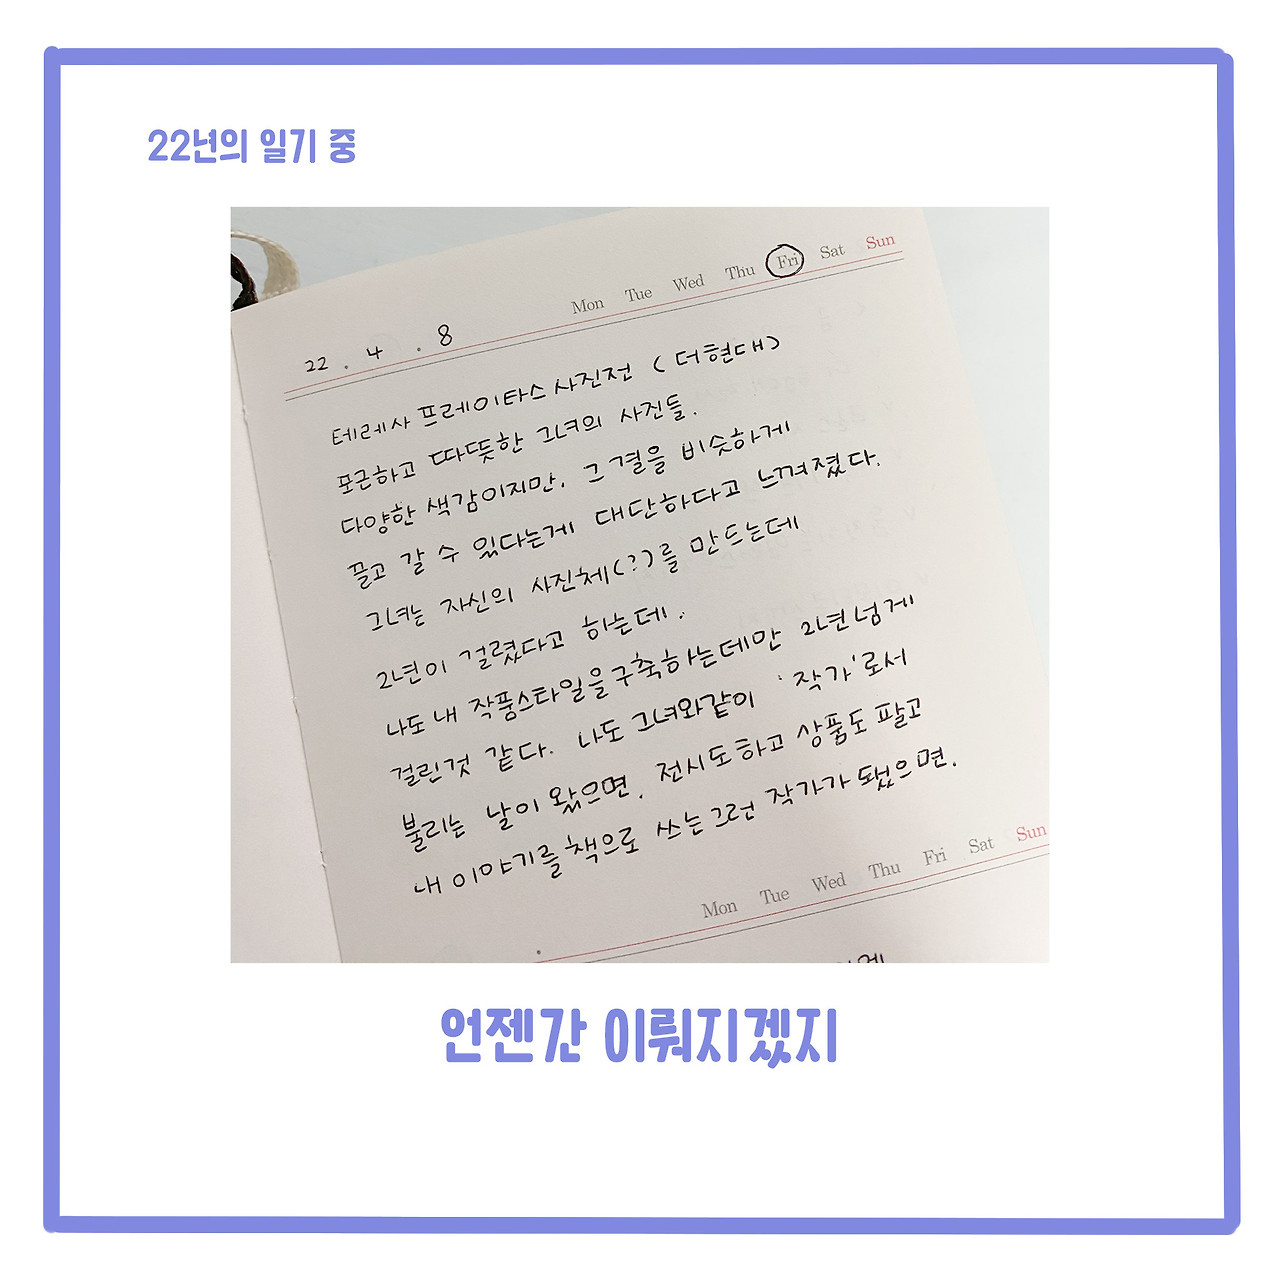 22년의 일기 중
Mon Tue Wed Thu Fri Sat Sun
22 . 4 . 8
테레사 프레이타스 사진전 (더현대)
포근하고 따뜻한 그녀의 사진들.
다양한 색감이지만, 그 결을 비슷하게
끌고 갈 수 있다는게 대단하다고 느껴졌다.
그녀는 자신의 사진체(?)를 만드는데
2년이 걸렸다고 하는데.
나도 내 작품스타일을 구축하는데만 2년넘게
걸린것 같다. 나도 그녀와같이 '작가'로서
불리는 날이 왔으면. 전시도하고 상품도 팔고
내 이야기를 책으로 쓰는 그런 작가가 됐으면.
Mon Tue Wed Thu Fri Sat Sun
언젠간 이뤄지겠지